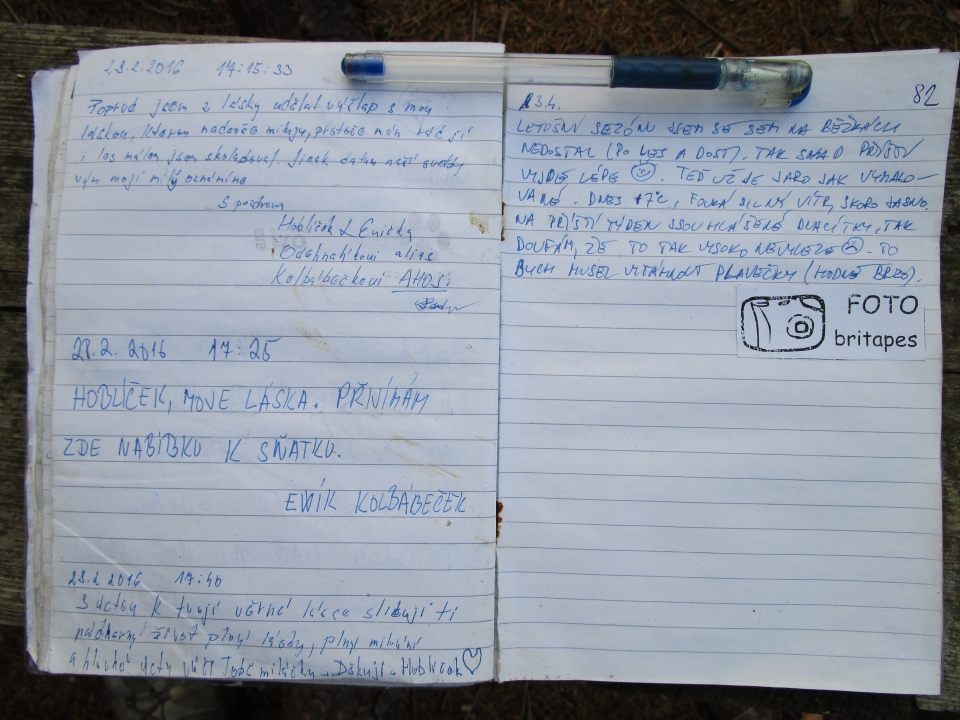 23.2.2016 17:15:33
Poprvé jsem z lásky udělal výčlap s mou
láskou, kterou nadevše miluji, protože mám rád její
i les málem jsem skolaboval. Jinak datum naší svatby
vám moji milý oznámíme
S pozdravem
Hoblíček & Enička
Odehnalíkovi alias
Kolbábečkovi AHOJ.
28.2.2016 17:25
HOBLÍČEK, MOVE LÁSKA. PŘIJÍMÁM
ZDE NABÍBKU K SŇATKU.
EVIÍK KOLBÁBEČEK
23.2 2016 17:40
S úctou k tvojí věrné lásce slibuji ti
nádherný život plný lásky, plný milování
a hlavně úcty vůči Tobě miláčku. Děkuji Hoblíček
82
23.4.
LETOŠNÍ SEZÓNU JSEM SE SEM NA BĚŽKÁCH
NEDOSTAL (PO LES A DOST). TAK SNAD PŘÍŠTÍ
VYJDE LÉPE ☺. TEĎ UŽ JE JARO JAK VYMALO-
VANÉ. DNES +7°C, FOUKÁ SILNÝ VÍTR, SKORO JASNO.
NA PŘÍŠTÍ TÝDEN JSOU HLÁŠENÉ DVACÍTKY, TAK
DOUFÁM, ŽE TO TAK VYSOKO NEVYLEZE ☹. TO
BYCH MUSEL VYTÁHNOUT PLAVEČKY (HODNĚ BRZO).
FOTO
britapes